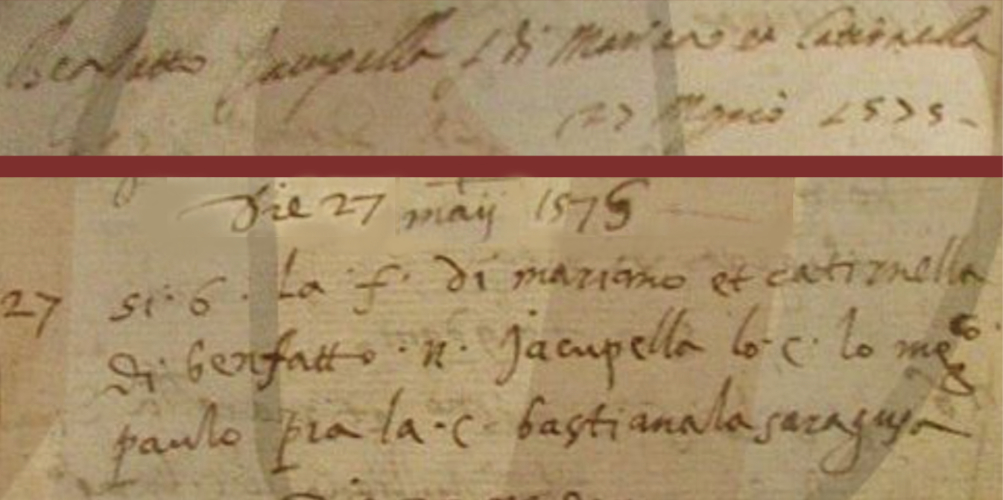 Benfatto Jacupella f di Mariano et Catirinella
27 Magio 1575
Die 27 maij 1575
27 si· b· La f· di mariano et catirinella
di benfatto · n · Jacupella lo· c · lo
paulo pia la · c · bastiana la saragusa